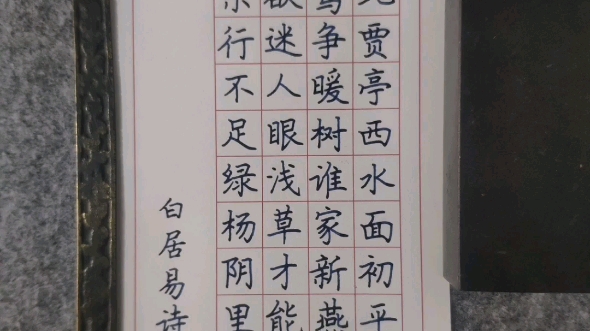 贾亭西水面初平
争暖树谁家新燕
欲迷人眼浅草才能
行不足绿杨阴里
白居易诗